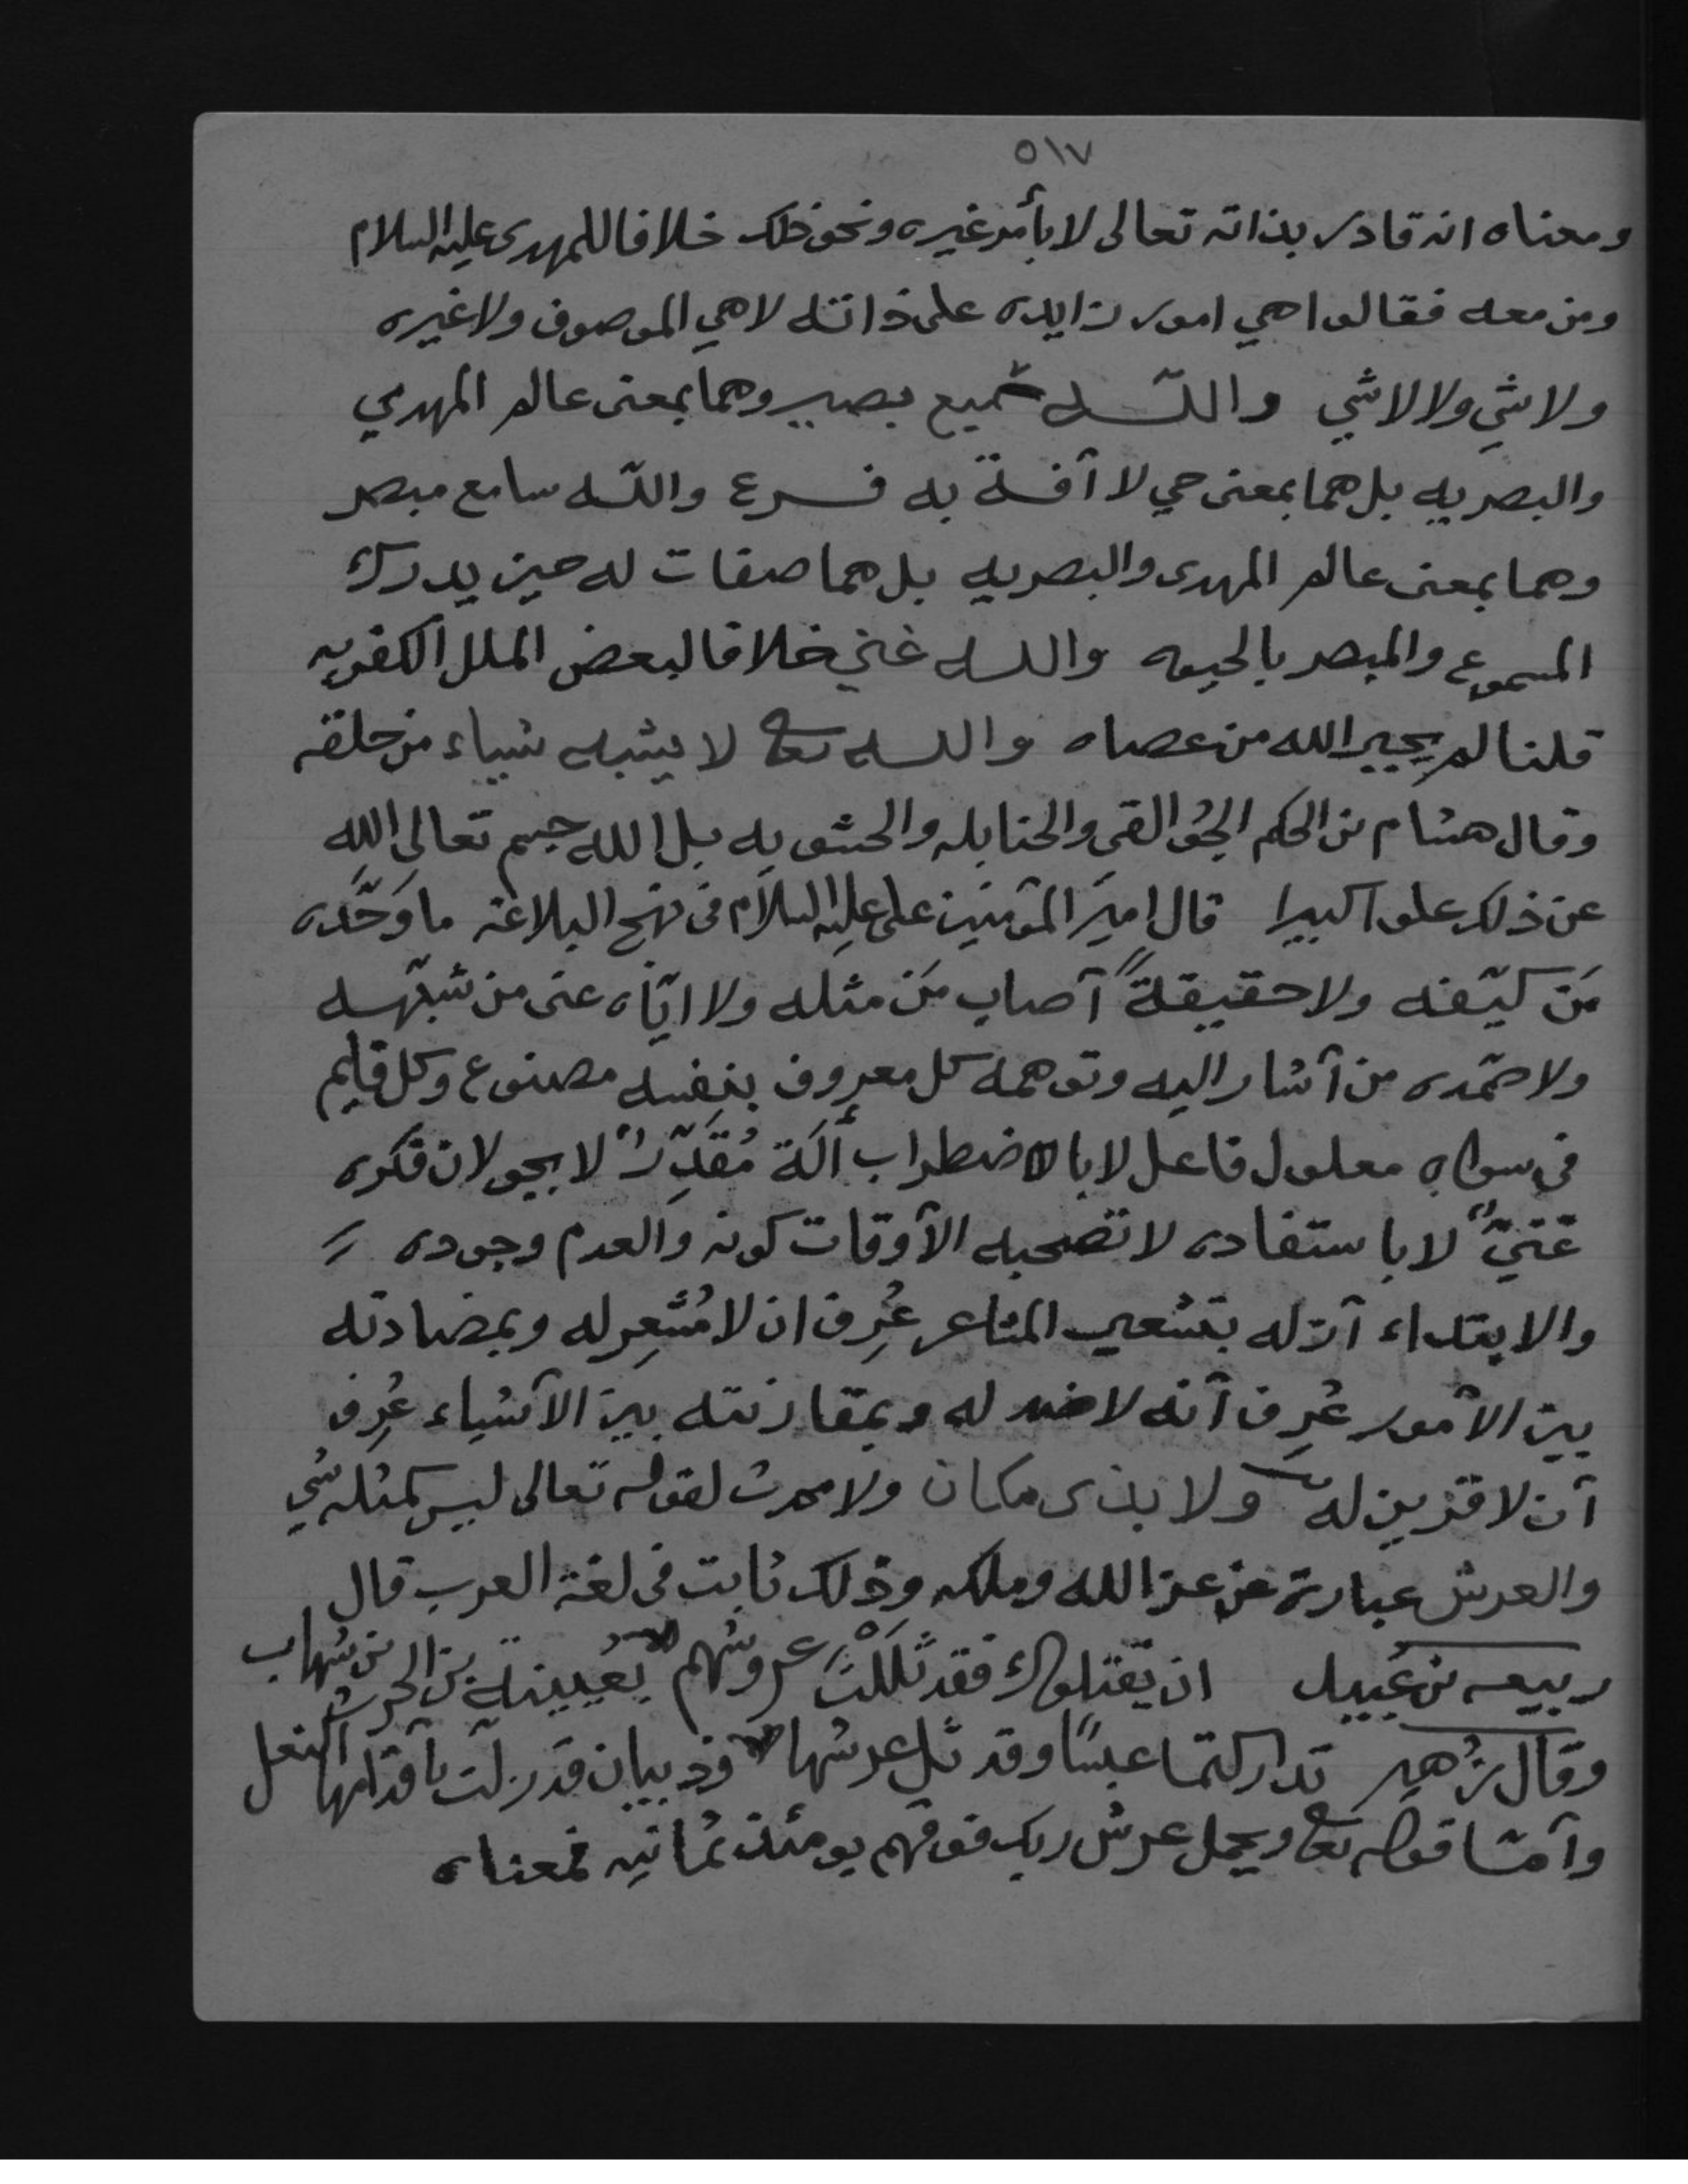 ٥١٧
ومعناه انه قادر بذاته تعالى لا بأمر غيره ونحو ذلك خلافا للمهدى عليه السلام
ومن معه فقالوا هي امور زايده على ذاتله لا هي الموصوف ولا غيره
ولا شي ولا لا شي واللّه سميع بصير وهما بمعنى عالم المهدي
والبصريه بل هما بمعنى حي لا آفة به فرع واللّه سامع مبصر
وهما بمعنى عالم المهدى والبصريه بل هما صفات له حين يدرك
المسموع والمبصر بالحيوه والله غني خلافا لبعض الملل الكفريه
قلنا لم يجبر الله من عصاه والله تعالى لا يشبه شياء من خلقه
وقال هشام بن الحكم الجوالقي والحنابله والحشويه بل الله جسم تعالى الله
عن ذلك علوا كبيرا قال اميَر المؤمنين على عليه السلام فى نهج البلاغه ما وَحَّده
مَن كيّفه ولا حقيقةً آصاب مَن مثله ولا ايّاه عنى من شبّهه
ولا صَمّده من آشار اليه وتوهمه كل معروف بنفسه مصنوع وكل قايم
في سواه معلول فاعل لا با لاضطراب ألَة مُقَدِّرٌ لا بجولان فكره
غنيٌّ لا باستفاده لا تصحبه الآوقات كونه والعدم وجوده
والابتداء آزله بتشعير المشاعر عُرِف ان لا مُشْعِر له وبمضادته
بين الأمور عُرِف آنه لا ضد له وبمقارنته بين الآشياء عُرِف
آن لا قرين له ولا بذى مكان ولا محدث لقوله تعالى ليس كمثله شي
والعرش عبارة عن عز الله وملكه وذلك ثابت فى لغة العرب قال
ربيعه بن عُبيد ان يَقتلوك فقد ثَللْتَ عروشهم بعُيينة بن الحرث بن شهاب
وقال زُهير تداركتما عبسًا وقد ثُل عرشها وذبيان قد زلت بآقدامها النعل
وآمّا قوله تعالى ويحمل عرش ربك فوقهم يومئذ ثمانيه فمعناه